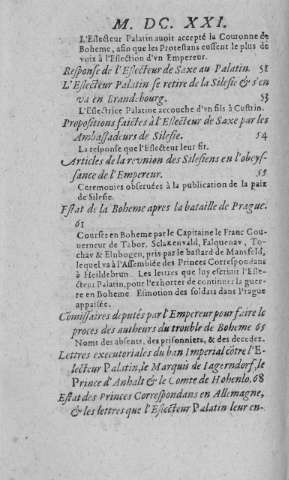 M. DC. XXI.
L'Eslecteur Palatin auoit accepté la Couronne de
Boheme, afin que les Protestans eussent le plus de
voix à l'Eslection d'vn Empereur.
Response de l'Eslecteur de Saxe au Palatin. 51
L'Eslecteur Palatin se retire de la Silesie & s'en
va en Brandebourg. 53
L'Eslectrice Palatine accouche d'vn fils à Custrin.
Propositions faictes à l'Eslecteur de Saxe par les
Ambassadeurs de Silesie. 54
La response que l'Eslecteur leur fit.
Articles de la reunion des Silesiens en l'obeys-
sance de l'Empereur. 55
Ceremonies obseruées à la publication de la paix
de Silesie.
Estat de la Boheme apres la bataille de Prague.
61
Courses en Boheme par le Capitaine le Franc Gou-
uerneur de Tabor. Sclaxenvald, Falquenav, To-
chav & Elnbogen, pris par le bastard de Mansfeld,
lequel va à l'Assemblée des Princes Correspondans
à Heildebrun. Les lettres que luy escriuit l'Esle-
cteur Palatin, pour l'exhorter de continuer la guer-
re en Boheme. Esmotion des soldats dans Prague
appaisée.
Cōmissaires deputés par l'Empereur pour faire le
proces des autheurs du trouble de Boheme 65
Noms des absents, des prisonniers, & des decedez.
Lettres executoriales du ban Imperial cōtre l'E-
lecteur Palatin, le Marquis de Iagerndorf, le
Prince d'Anhalt & le Comte de Hohenlo. 68
Estat des Princes Correspondans en Allemagne,
& les lettres que l'Eslecteur Palatin leur en-